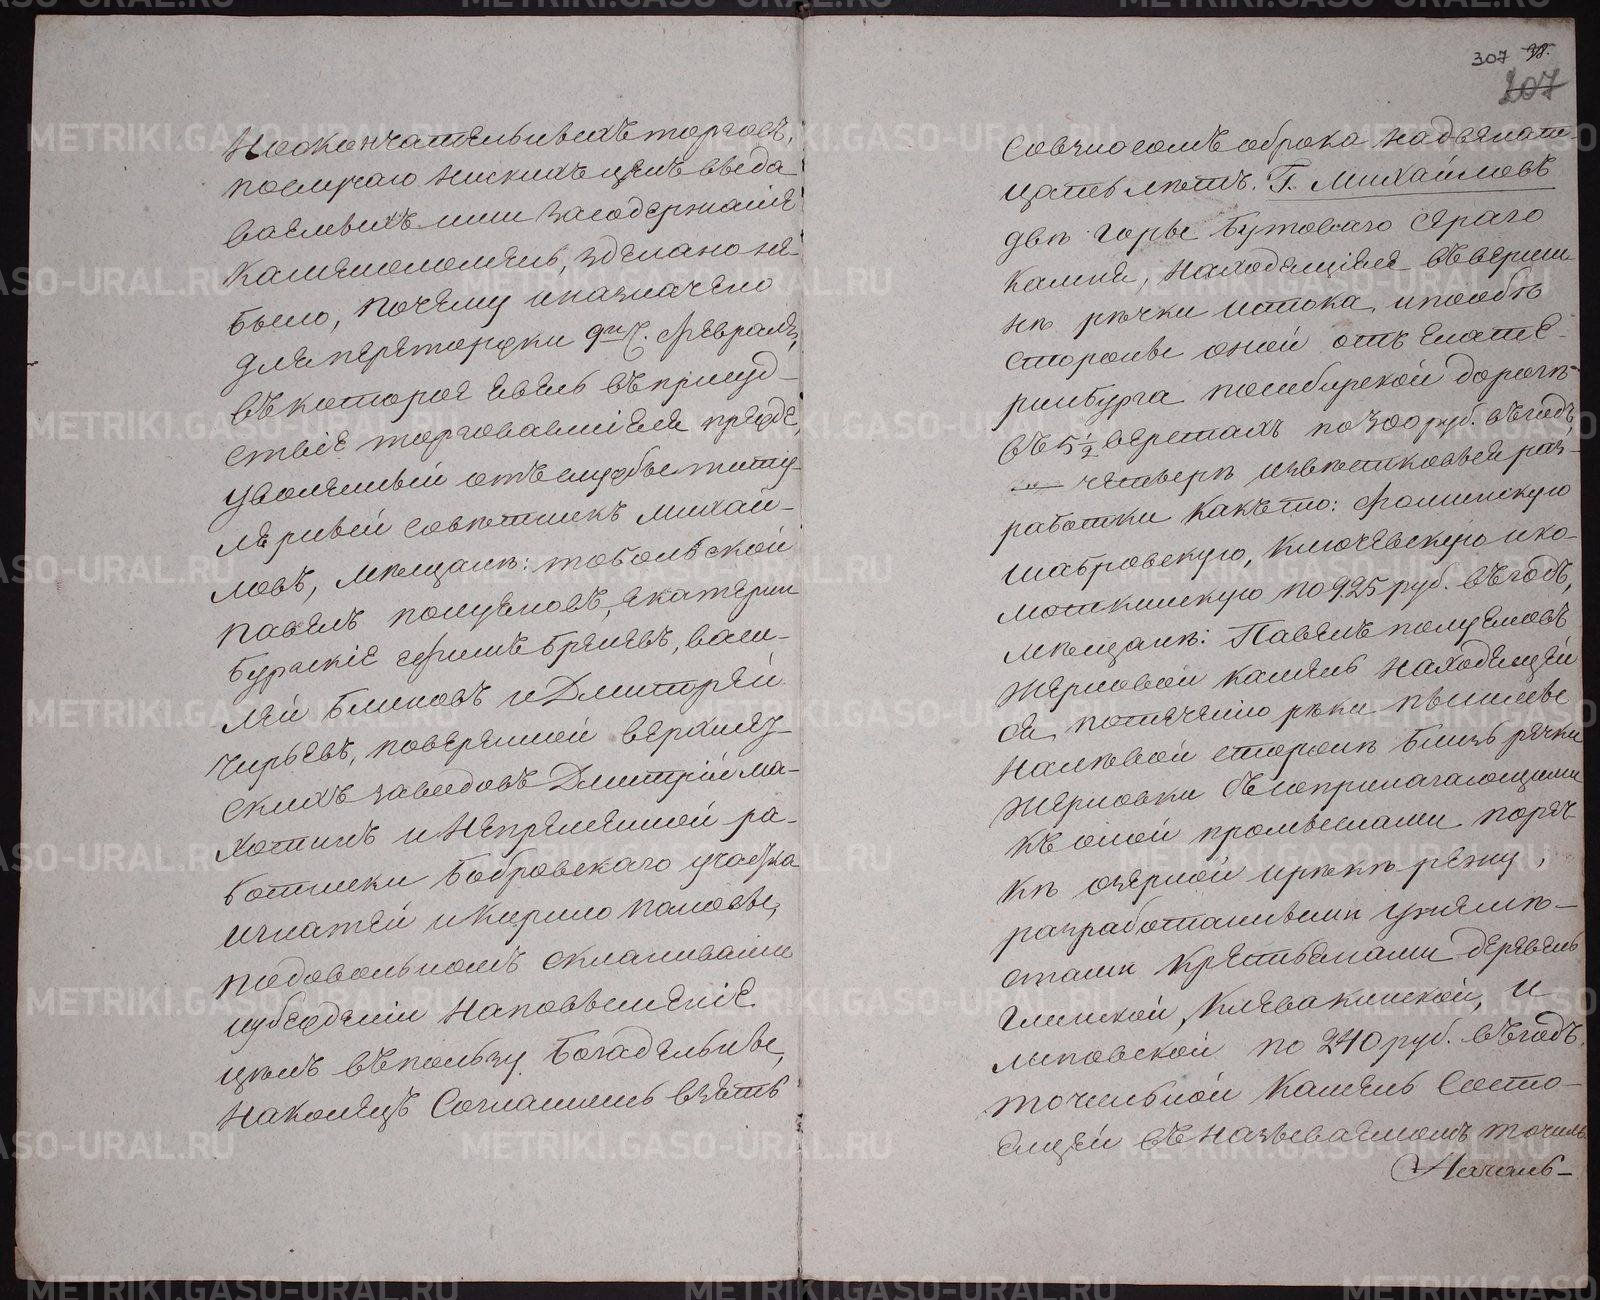 Но окончательныхъ торговъ,
по случаю нискихъ ценъ ввѣда
ваемыхъ ими за содержание
каменоломень, зделано не
было, почему и назначено
для переторжки 9го ч. февраля,
въ которое явясь въ присуд-
ствіе торговавшіеся прежде,
уволенный отъ службы титу-
лярный совѣтникъ Михай-
ловъ, мѣщанѣ: тобольской
Павелъ Полуяновъ, екатерин
бургскіе Филипъ Бреневъ, Васи-
лей Блиновъ и Дмитрей
Чирьевъ, поверенной верхнеу-
скихъ заводовъ Дмитрій Ма-
хотинъ и непременной ра-
ботники Бобровского участка
Игнатей и Кирило Пановы,
по довольномъ склонивании
и убежденіи на повышеніе
ценъ въ пользу богадельны,
наконецъ согласились взять
307
207
со взносомъ оброка на двенат-
цать летъ. Г. Михайловъ
две горы бутоваго сераго
камня, находящіяся въ верши
не речки истока, и по обѣ
стороны оной отъ Екате-
ринбурга по сибирской дороге
въ 5 1/2 верстахъ по 300 руб. въ годъ,
четверы известковыя раз-
работки какъ то: Фоминскую
Шабровскую, Ключевскую и ко-
моткинскую по 925 руб. въ годъ,
мѣщанѣ: Павелъ Полуяновъ
жерновой камень находящей
ся, по теченію реки Пышмы
на левой стороне близь речки
жерновки съ соприлагающими
къ оной промыслами по реч-
ке озерной и реке режу,
разработанными уже не-
стами крестьянами деревень
Глинской, Клевакинской, и
Липовской по 240 руб. въ годъ,
точильной камень состо-
ящей въ называемомъ точиль
Началь-